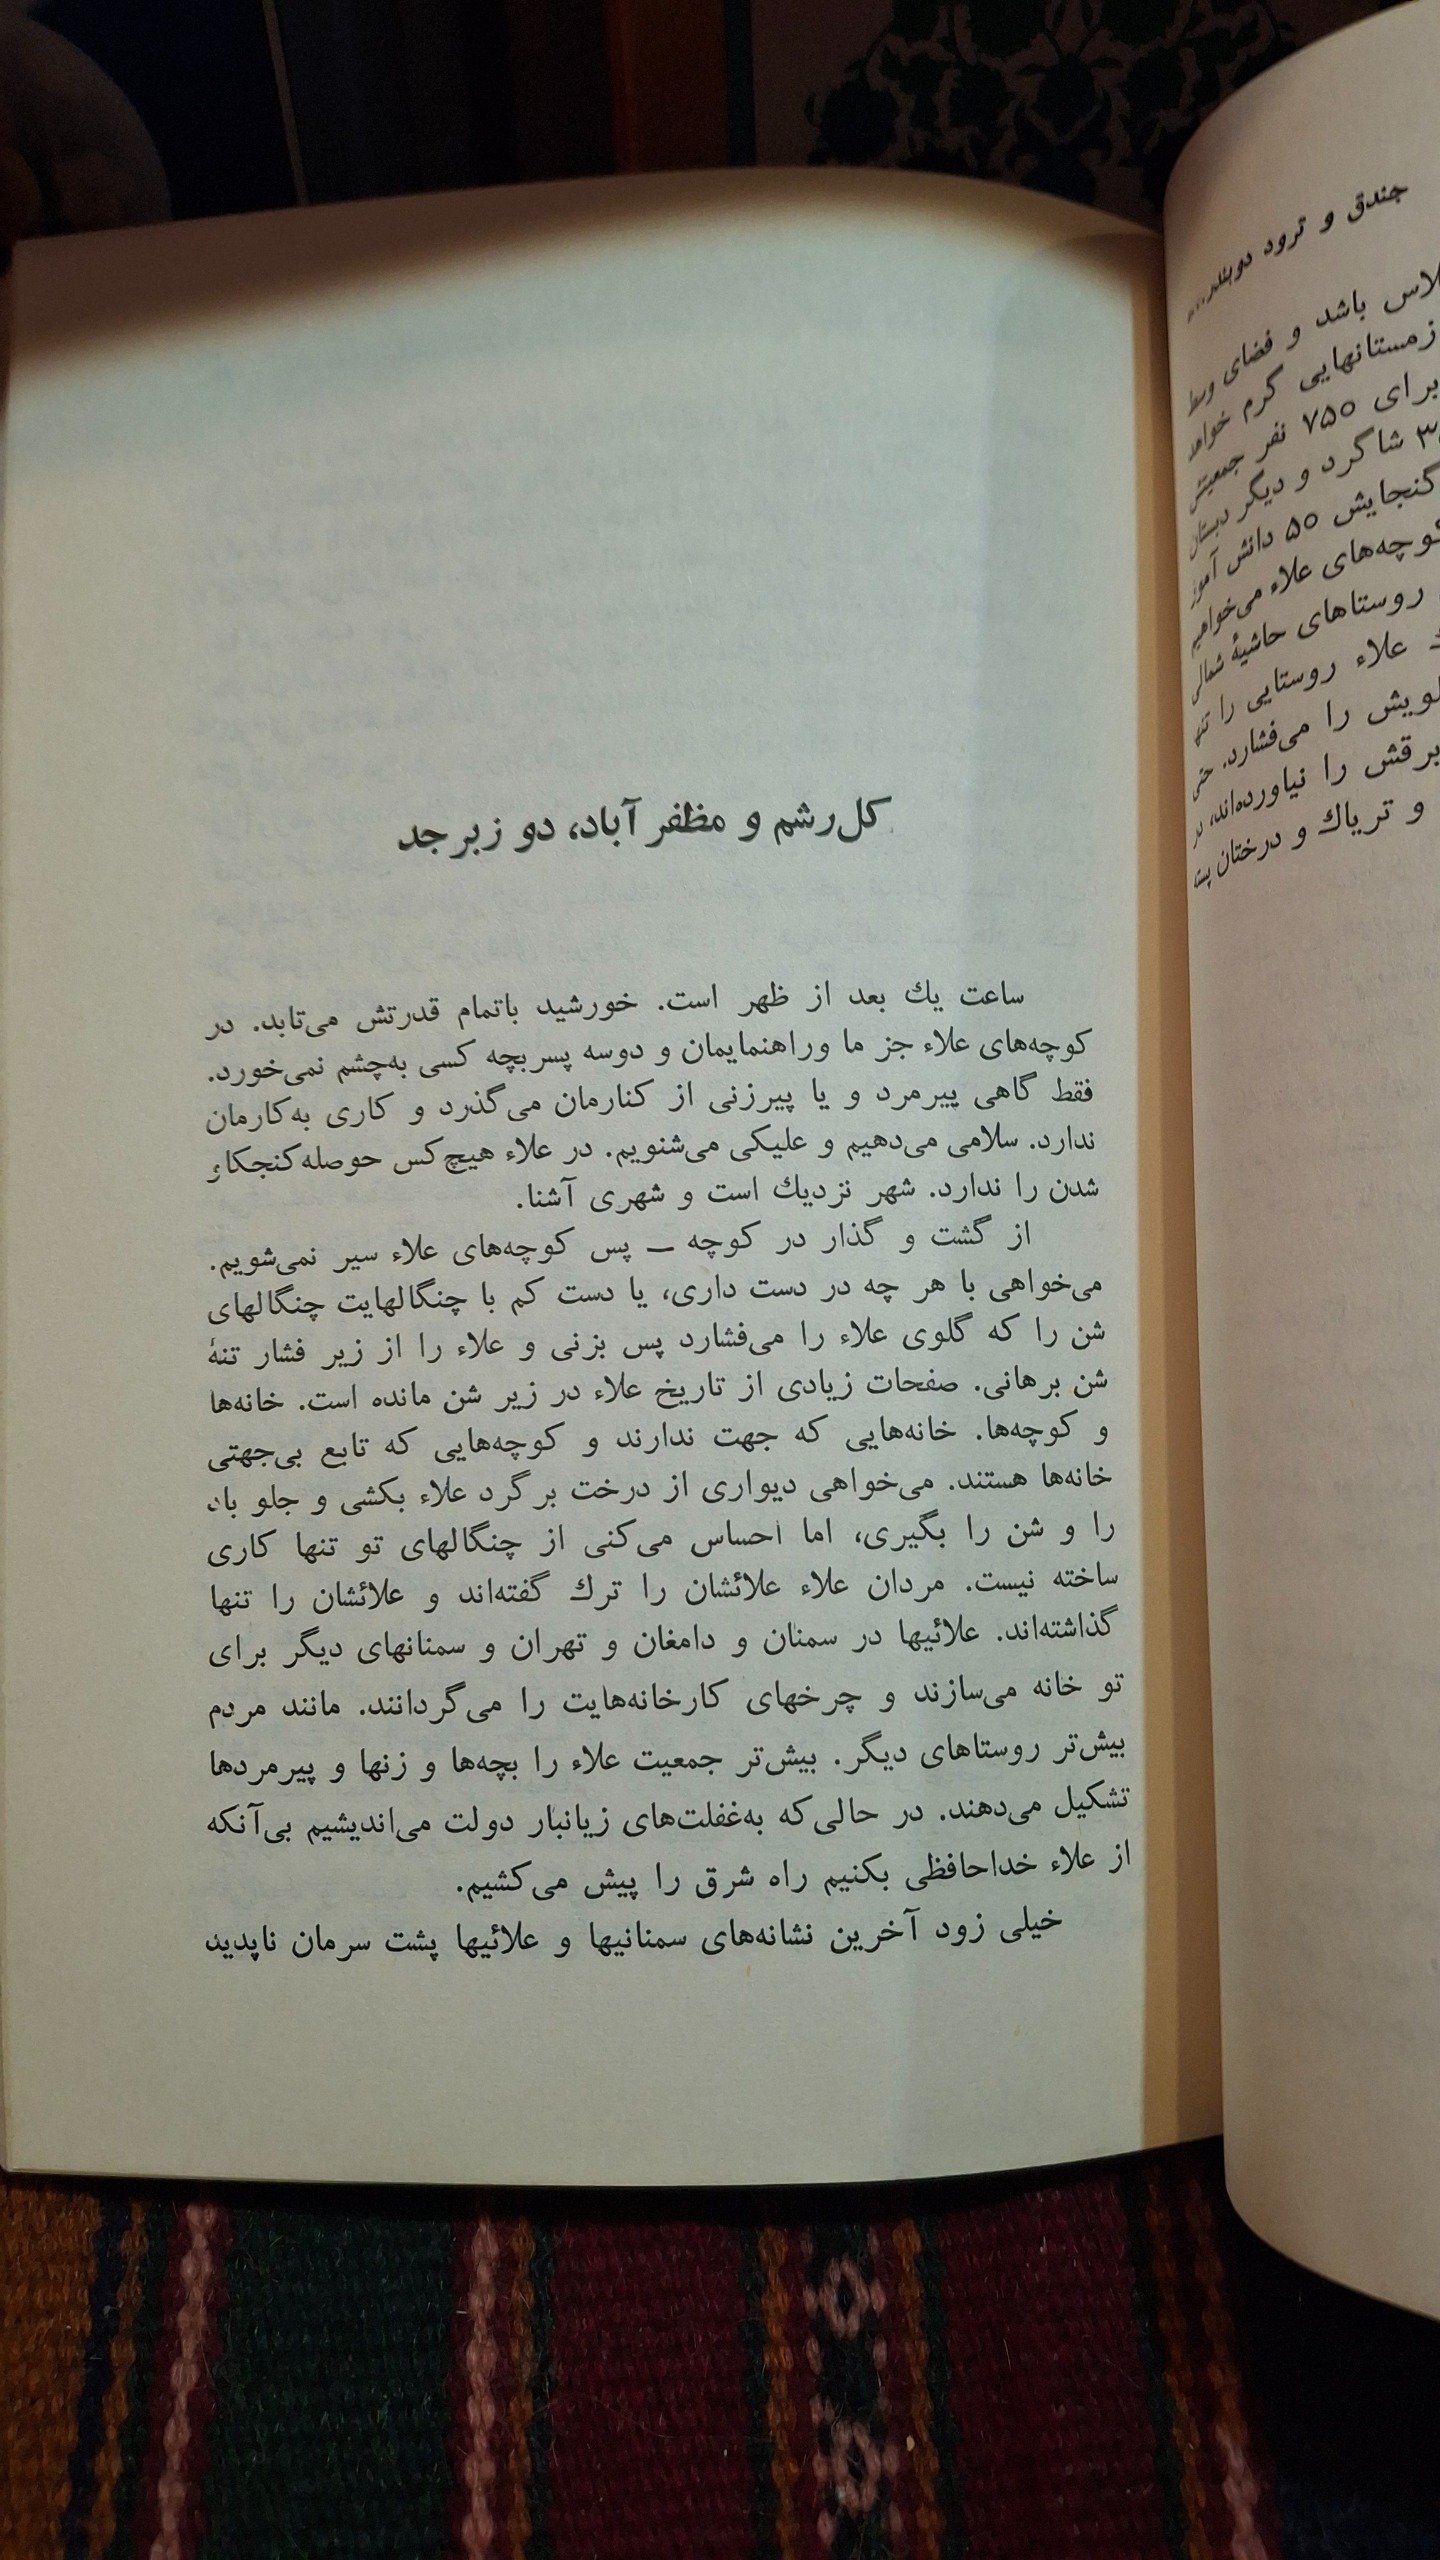 جندق و ترود
لاس باشد و فضای وسط
زمستانهایی گرم خواهد
برای ۷۵۰ نفر جمعیتش
شاگرد و دیگر دبستان
گنجایش ۵۰ دانش آموز
کوچه‌های علاء می‌خواهیم
روستاهای حاشیهٔ شمالی
علاء روستایی را تنها
را می‌فشارد. حتی
برقش را نیاورده‌اند، در
و تریاك و درختان
کل‌رشم و مظفر آباد، دو زبرجد
ساعت یك بعد از ظهر است. خورشید باتمام قدرتش می‌تابد. در
کوچه‌های علاء جز ما وراهنمایمان و دوسه پسربچه کسی به‌چشم نمی‌خورد.
فقط گاهی پیرمرد و یا پیرزنی از کنارمان می‌گذرد و کاری به‌کارمان
ندارد. سلامی می‌دهیم و علیکی می‌شنویم. در علاء هیچ‌کس حوصله‌کنجکاو
شدن را ندارد. شهر نزدیك است و شهری آشنا.
از گشت و گذار در کوچه — پس کوچه‌های علاء سیر نمی‌شویم.
می‌خواهی با هر چه در دست داری، یا دست کم با چنگالهایت چنگالهای
شن را که گلوی علاء را می‌فشارد پس بزنی و علاء را از زیر فشار تنهٔ
شن برهانی. صفحات زیادی از تاریخ علاء در زیر شن مانده است. خانه‌ها
و کوچه‌ها. خانه‌هایی که جهت ندارند و کوچه‌هایی که تابع بی‌جهتی
خانه‌ها هستند. می‌خواهی دیواری از درخت بر گرد علاء بکشی و جلو باد
را و شن را بگیری، اما احساس می‌کنی از چنگالهای تو تنها کاری
ساخته نیست. مردان علاء علائشان را ترك گفته‌اند و علائشان را تنها
گذاشته‌اند. علائیها در سمنان و دامغان و تهران و سمنانهای دیگر برای
تو خانه می‌سازند و چرخهای کارخانه‌هایت را می‌گردانند. مانند مردم
بیش‌تر روستاهای دیگر. بیش‌تر جمعیت علاء را بچه‌ها و زنها و پیرمردها
تشکیل می‌دهند. در حالی‌که به‌غفلت‌های زیانبار دولت می‌اندیشیم بی‌آنکه
از علاء خداحافظی بکنیم راه شرق را پیش می‌کشیم.
خیلی زود آخرین نشانه‌های سمنانیها و علائیها پشت سرمان ناپدید